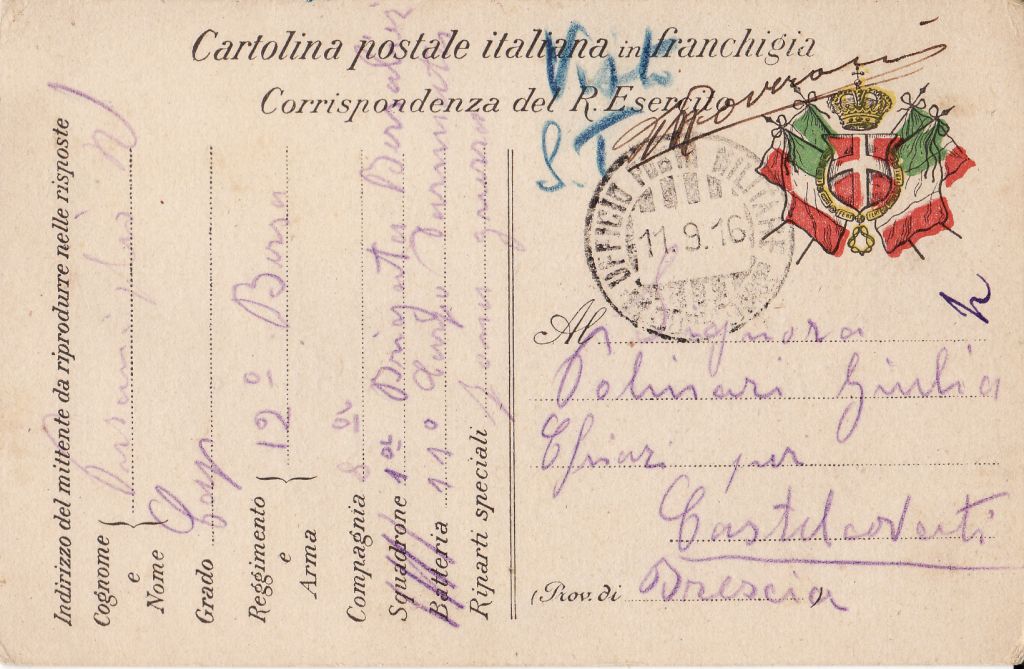 Cartolina postale italiana in franchigia
Corrispondenza del R. Esercito
Visto
S.T.
UFFICIO MILITARE
11.9.16
Al Signora
Polinari Giulia
Chiari per
Castelcovati
(Prov. di Brescia)
Indirizzo del mittente da riprodurre nelle risposte
Cognome
e
Nome
Grado Casp
Reggimento
e
Arma
12° Bers
Compagnia 8
Squadrone 1a Brigata Bersaglieri
Batteria 11° Corpo Darmmata
Riparti speciali Zona guerra